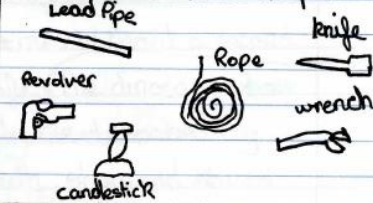 Lead Pipe
knife
Rope
Revolver
wrench
candlestick